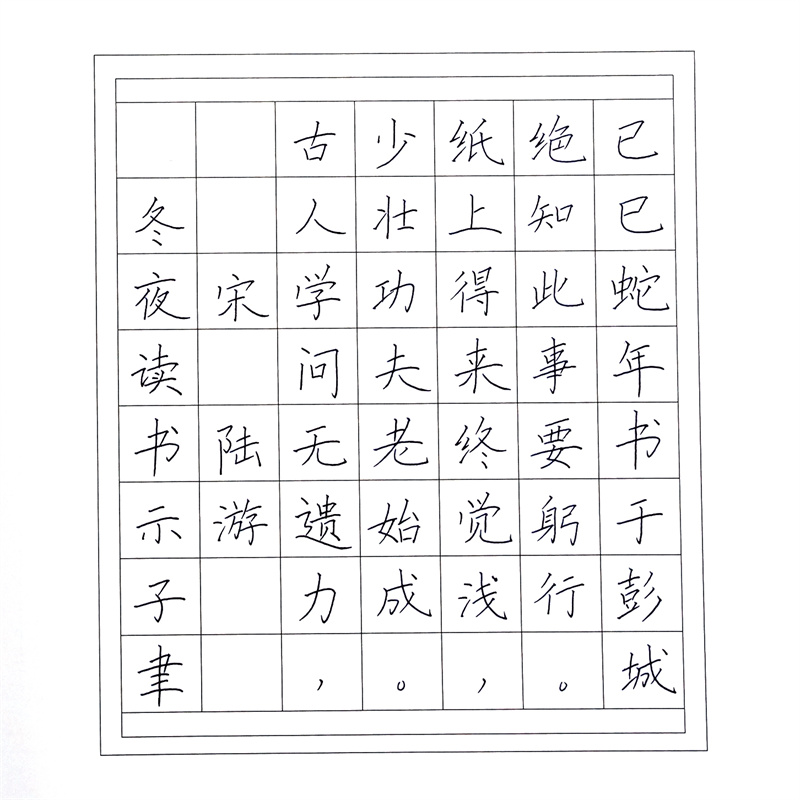 冬夜读书示子聿
宋 陆游
古人学问无遗力，
少壮功夫老始成。
纸上得来终觉浅，
绝知此事要躬行。
已巳蛇年书于彭城